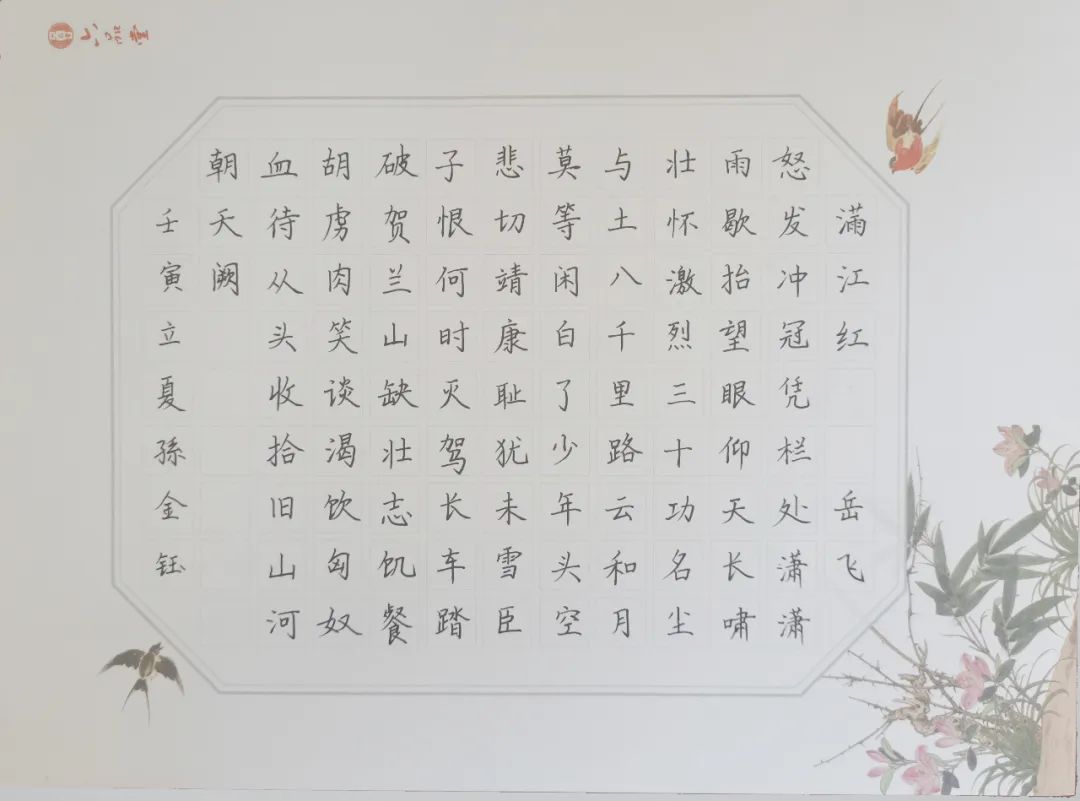 满江红 岳飞
怒发冲冠凭栏处潇潇
雨歇抬望眼仰天长啸
壮怀激烈三十功名尘
与土八千里路云和月
莫等闲白了少年头空
悲切靖康耻犹未雪臣
子恨何时灭驾长车踏
破贺兰山缺壮志饥餐
胡虏肉笑谈渴饮匈奴
血待从头收拾旧山河
朝天阙
壬寅立夏孫金钰
六品堂